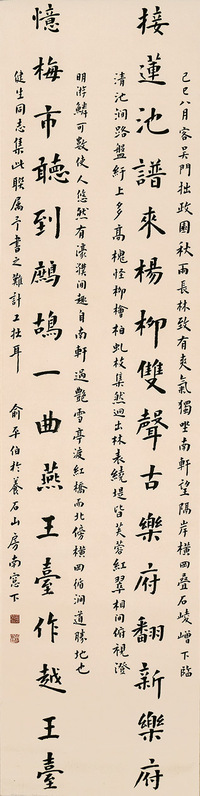 己巳八月客吴門拙政園秋雨長林致有爽氣獨坐南軒望隔岸横岡疊石崚嶒下臨
接蓮池譜來楊柳雙聲古樂府翻新樂府
清池澗路盤紆上多高槐怪柳檜柏虬枝集然迴出林表繞堤皆芙蓉紅翠相間俯視澄
明游鱗可數使人悠然有濠濮間趣自南軒過艷雪亭渡紅橋而北傍横岡俯澗道勝地也
憶梅市聽到鷓鴣一曲燕王臺作越王臺
健生同志集此聯属予書之難計工拙耳
俞平伯於養石山房南窗下